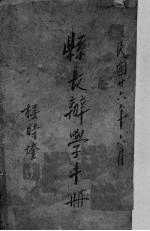 民國廿六年八月
縣長辦學手冊
程時煃